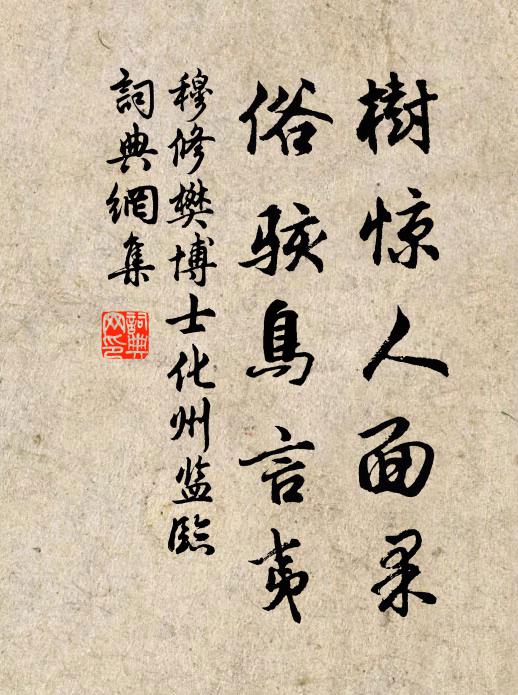 樹惊人面果
俗骇鳥言夷
穆修樊博士化州监臨
詞典網集
詞典网印